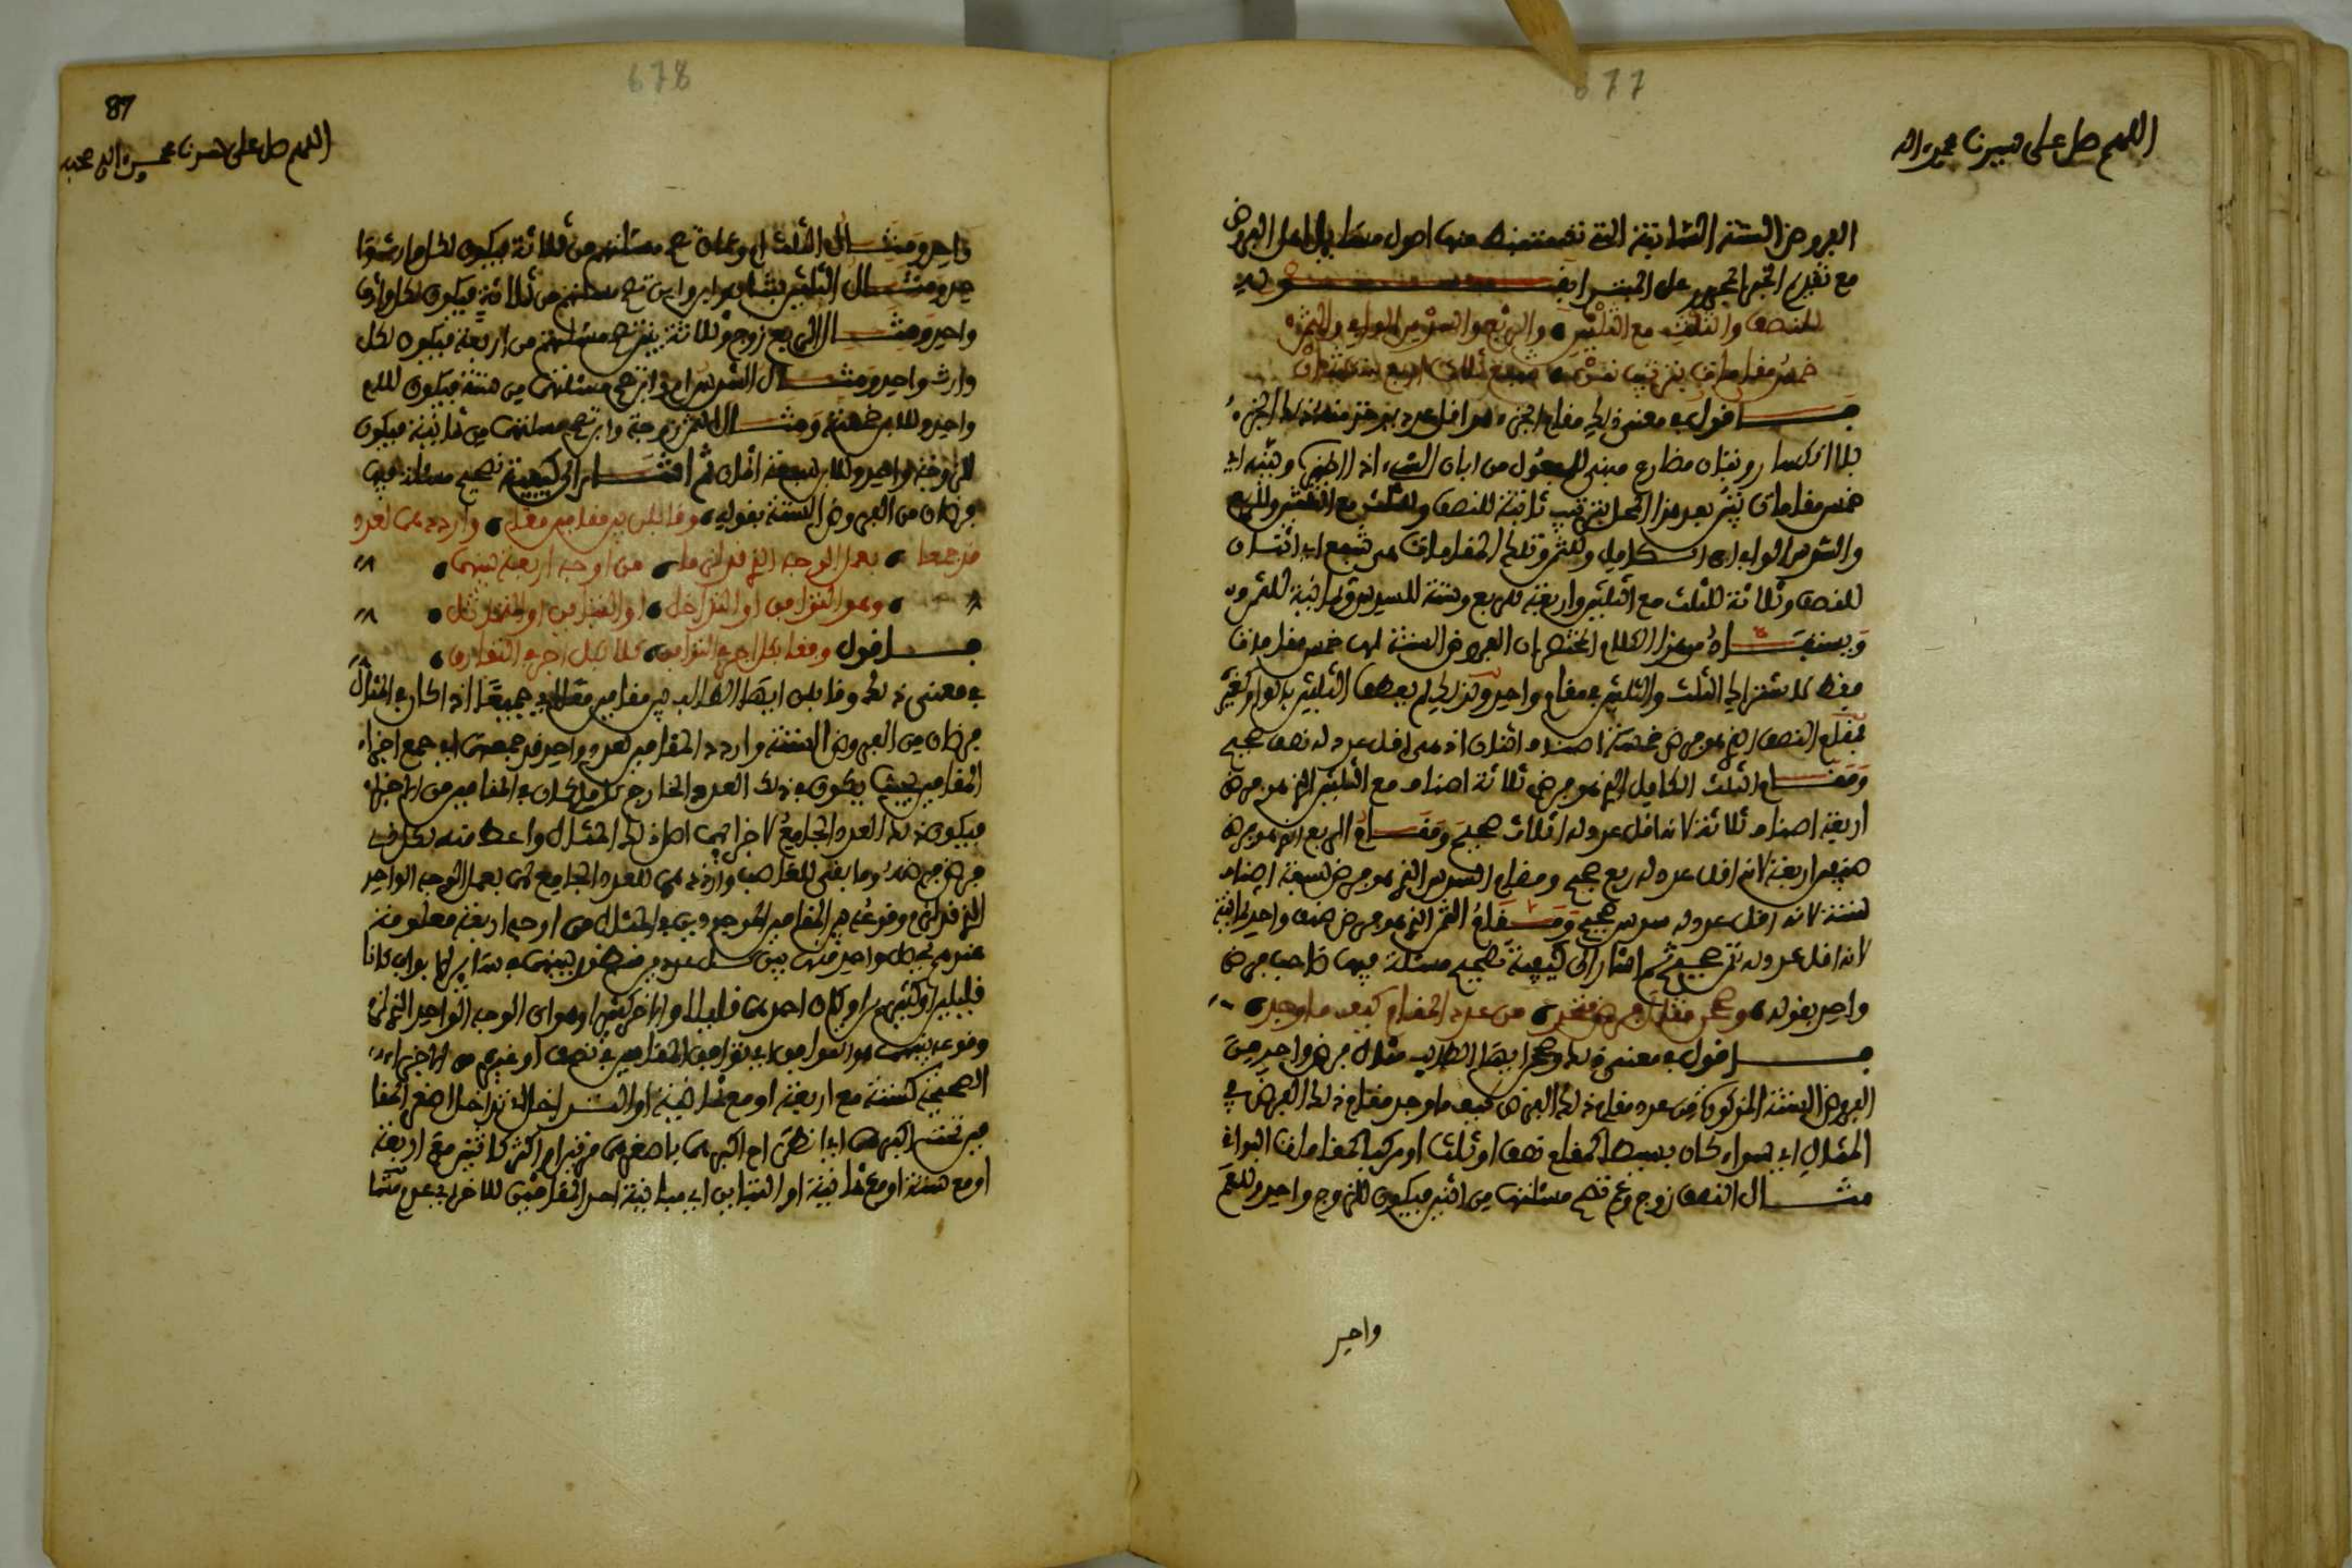 677
اللهم صل على سيدنا محمد واله
الفروض الستة الثمانية التي تستنبط منها اصول مسايل اهل الفروض
مع تقديم الخبر المجرور على المبتدا
للنصف والثلث مع الثلثين والربع والسدس الولي والثمن
خمس مقامات بترتيب
اقول في معنى ذلك مقام الجزء هو اقل عدد يوخذ منه ذلك الجزء
بلا انكسار وتبان مضارع مبني للمفعول من ابان الشيء اذا اظهره وبينه اي
خمس مقامات تبين بعد هذا المحل بترتيب ثابتة للنصف والثلث مع الثلثين والربع
والسدس الولي اي الكامل والثمن وتلك المقامات هي شفع اي اثنان
للنصف وثلاثة للثلث مع الثلثين واربعة للربع وستة للسدس وثمانية للثمن
ويستفاد من هذا الكلام المختصر ان الفروض الستة لها خمس مقامات
فقط لاشتراك الثلث والثلثين في مقام واحد ولذلك لم يعطف الثلثين بالواو كغيره
فمقام النصف الذي هو فرض خمسة اصناف اثنان اذ هي اقل عدد له نصف صحيح
ومقام الثلث الكامل الذي هو فرض ثلاثة اصناف مع الثلثين الذي هو فرض
اربعة اصناف ثلاثة لانه اقل عدد له اثلاث صحيح ومقام الربع الذي هو فرض
صنفين اربعة لانه اقل عدد له ربع صحيح ومقام السدس الذي هو فرض سبعة اصناف
ستة لانه اقل عدد له سدس صحيح ومقام الثمن الذي هو فرض صنف واحد ثمانية
لانه اقل عدد له ثمن صحيح ثم اشار الى كيفية تصحيح مسئلة فيها صاحب فرض
واحد بقوله وصحح فرض من عدد المقام كيف ما وجد
اقول في معنى ذلك وصحح ايها الطالب مثال فرض واحد من
الفروض الستة المذكورة من عدد مقام ذلك الفرض كيف ما وجد مقام ذلك الفرض في
المثال اي سواء كان بسيطا كمقام نصف او ثلث او مركبا كمقامات البواقي
مثال النصف زوج وعم تصح مسئلتهما من اثنين فيكون للزوج واحد وللعم
واحد
678
87
اللهم صل على سيدنا محمد واله وصحبه
واحد ومثال الثلث ام وعمان تصح مسئلتهم من ثلاثة فيكون لكل وارث وا
حد ومثال الثلثين بنتان وابن ابن تصح مسئلتهم من ثلاثة فيكون لكل وارث
واحد ومثال الربع زوج وثلاثة بنين تصح مسئلتهم من اربعة فيكون لكل
وارث واحد ومثال السدس ام وابن تصح مسئلتهما من ستة فيكون للام
واحد وللابن خمسة ومثال الثمن زوجة وابن تصح مسئلتهما من ثمانية فيكون
للزوجة واحد وللابن سبعة اثمان ثم اشار الى كيفية تصحيح مسئلة فيها
فرضان من الفروض الستة بقوله وقابلن بين مقامين معا وارددهما لعدد
قد جمعا بعد الوجه الذي قد لزما من اوجه اربعة بينهما
وهو التوافق او التداخل او التباين او التماثل
اقول
في معنى ذلك وقابلن ايها الطالب بين مقامين معا اي جميعا اذا كان في المثال
فرضان من الفروض الستة واردد المقامين لعدد واحد قد جمعهما اي جمع اجزاء
المقامين بحيث يكون في ذلك العدد الخارج كل ما كان في المقامين من الاجزاء
فيكون ذلك العدد الجامع لاجزائهما اصل ذلك المثال واعط منه لكل ذي
فرض فرضه وما بقي للعاصب وارددهما للعدد الجامع لهما بعمل الوجه الواحد
الذي قد لزم وقوعه بين المقامين الموجودين في المثال من اوجه اربعة معلومة
عندهم يحصل واحد منها بين كل عددين منظور بينهما في سائر الابواب كانا
قليلين او كثيرين او كان احدهما قليلا والاخر كثيرا وهو اي الوجه الواحد الذي لزم
وقوعه بينهما هو التوافق اي توافق المقامين في نصف او غيره من الاجزاء
الصحيحة كستة مع اربعة او مع ثمانية او التداخل اي تداخل اصغر المقا
مين تحت اكبرهما اي انطباق اكبرهما باصغرهما مرتين او اكثر كاثنين مع اربعة
او مع ستة او مع ثمانية او التباين اي مباينة احد المقامين للاخر اي عدم